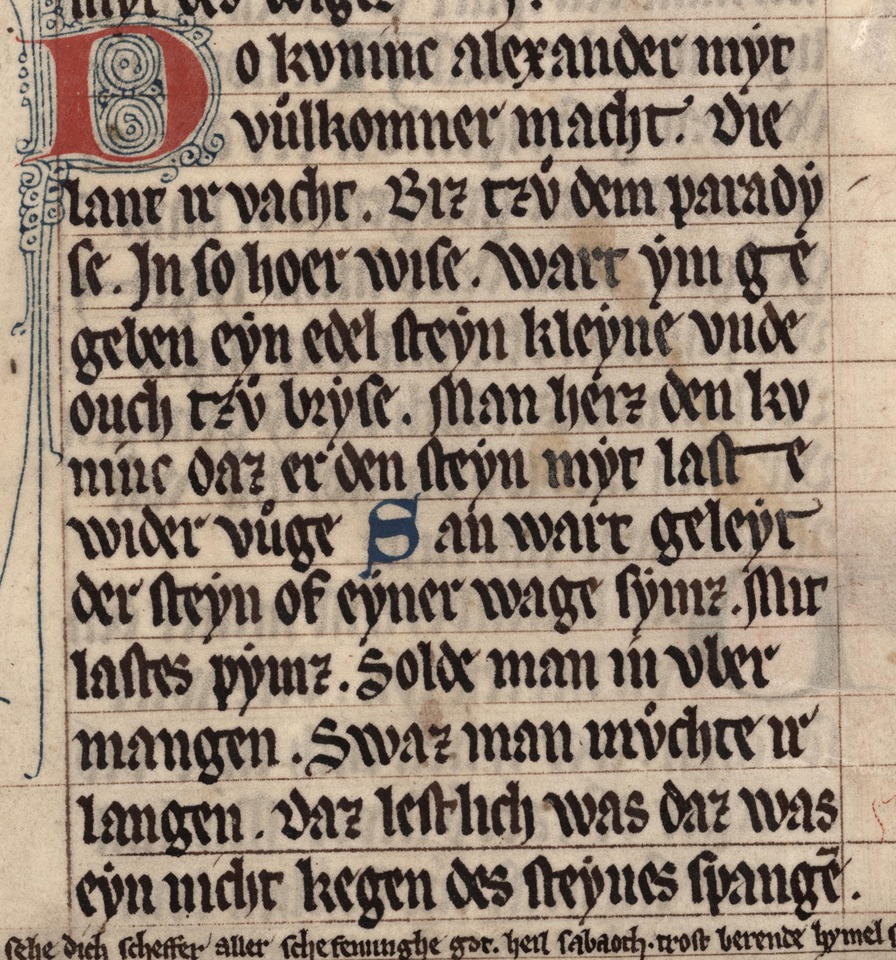 Do kvninc alexander myt
vůlkomner macht. Die
lant ir vacht. Biz tzv̊ dem parady
se. In so hoer wise. wart ẏm ge
geben eẏn edel steẏn kleẏne vnde
ouch tzv̊ brẏse. Man herz den kv
ninc daz er den steẏn mẏt last e
wider vůge San wart geleẏt
der steẏn of eẏner wage sẏmz. Mit
lastes pẏmz. Solde man in vber
mangen. Swaz man mv̊chte ir
langen. Daz lestlich was daz was
eẏn nicht kegen des steẏnes spangē.
sehe dich scheffer aller schefeninghe got. heil sabaoth. trost berende hymel